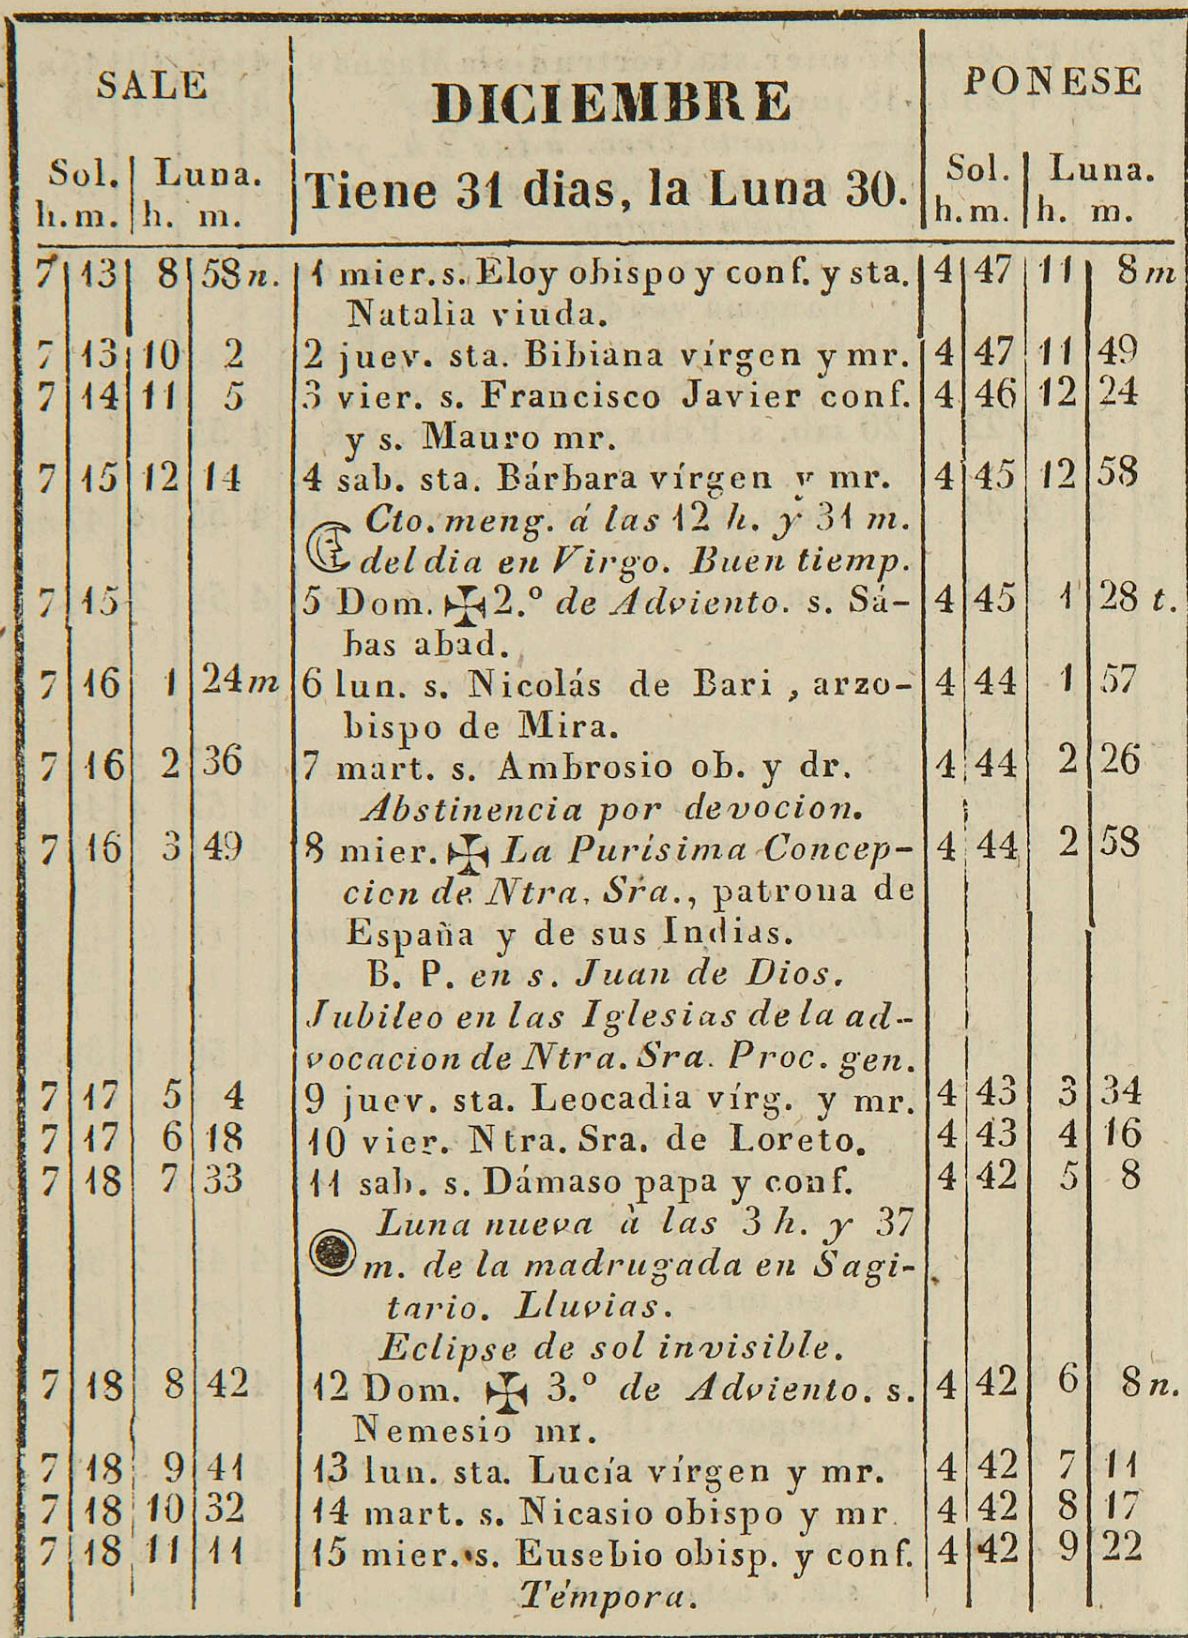 SALE DICIEMBRE PONESE
Sol. Luna. Tiene 31 dias, la Luna 30. Sol. Luna.
h. m. h. m. h. m. h. m.
7 13 8 58 n. 1 mier. s. Eloy obispo y conf. y sta. 4 47 11 8 m
Natalia viuda.
7 13 10 2 2 juev. sta. Bibiana vírgen y mr. 4 47 11 49
7 14 11 5 3 vier. s. Francisco Javier conf. 4 46 12 24
y s. Mauro mr.
7 15 12 14 4 sab. sta. Bárbara vírgen y mr. 4 45 12 58
Cto. meng. á las 12 h. y 31 m.
del dia en Virgo. Buen tiemp.
7 15 5 Dom. ✠ 2.º de Adviento. s. Sá- 4 45 1 28 t.
bas abad.
7 16 1 24 m 6 lun. s. Nicolás de Bari, arzo- 4 44 1 57
bispo de Mira.
7 16 2 36 7 mart. s. Ambrosio ob. y dr. 4 44 2 26
Abstinencia por devocion.
7 16 3 49 8 mier. ✠ La Purísima Concep- 4 44 2 58
cion de Ntra. Sra., patrona de
España y de sus Indias.
B. P. en s. Juan de Dios.
Jubileo en las Iglesias de la ad-
vocacion de Ntra. Sra. Proc. gen.
7 17 5 4 9 juev. sta. Leocadia vírg. y mr. 4 43 3 34
7 17 6 18 10 vier. Ntra. Sra. de Loreto. 4 43 4 16
7 18 7 33 11 sab. s. Dámaso papa y conf. 4 42 5 8
Luna nueva à las 3 h. y 37
m. de la madrugada en Sagi-
tario. Lluvias.
Eclipse de sol invisible.
7 18 8 42 12 Dom. ✠ 3.º de Adviento. s. 4 42 6 8 n.
Nemesio mr.
7 18 9 41 13 lun. sta. Lucía vírgen y mr. 4 42 7 11
7 18 10 32 14 mart. s. Nicasio obispo y mr. 4 42 8 17
7 18 11 11 15 mier. s. Eusebio obisp. y conf. 4 42 9 22
Témpora.